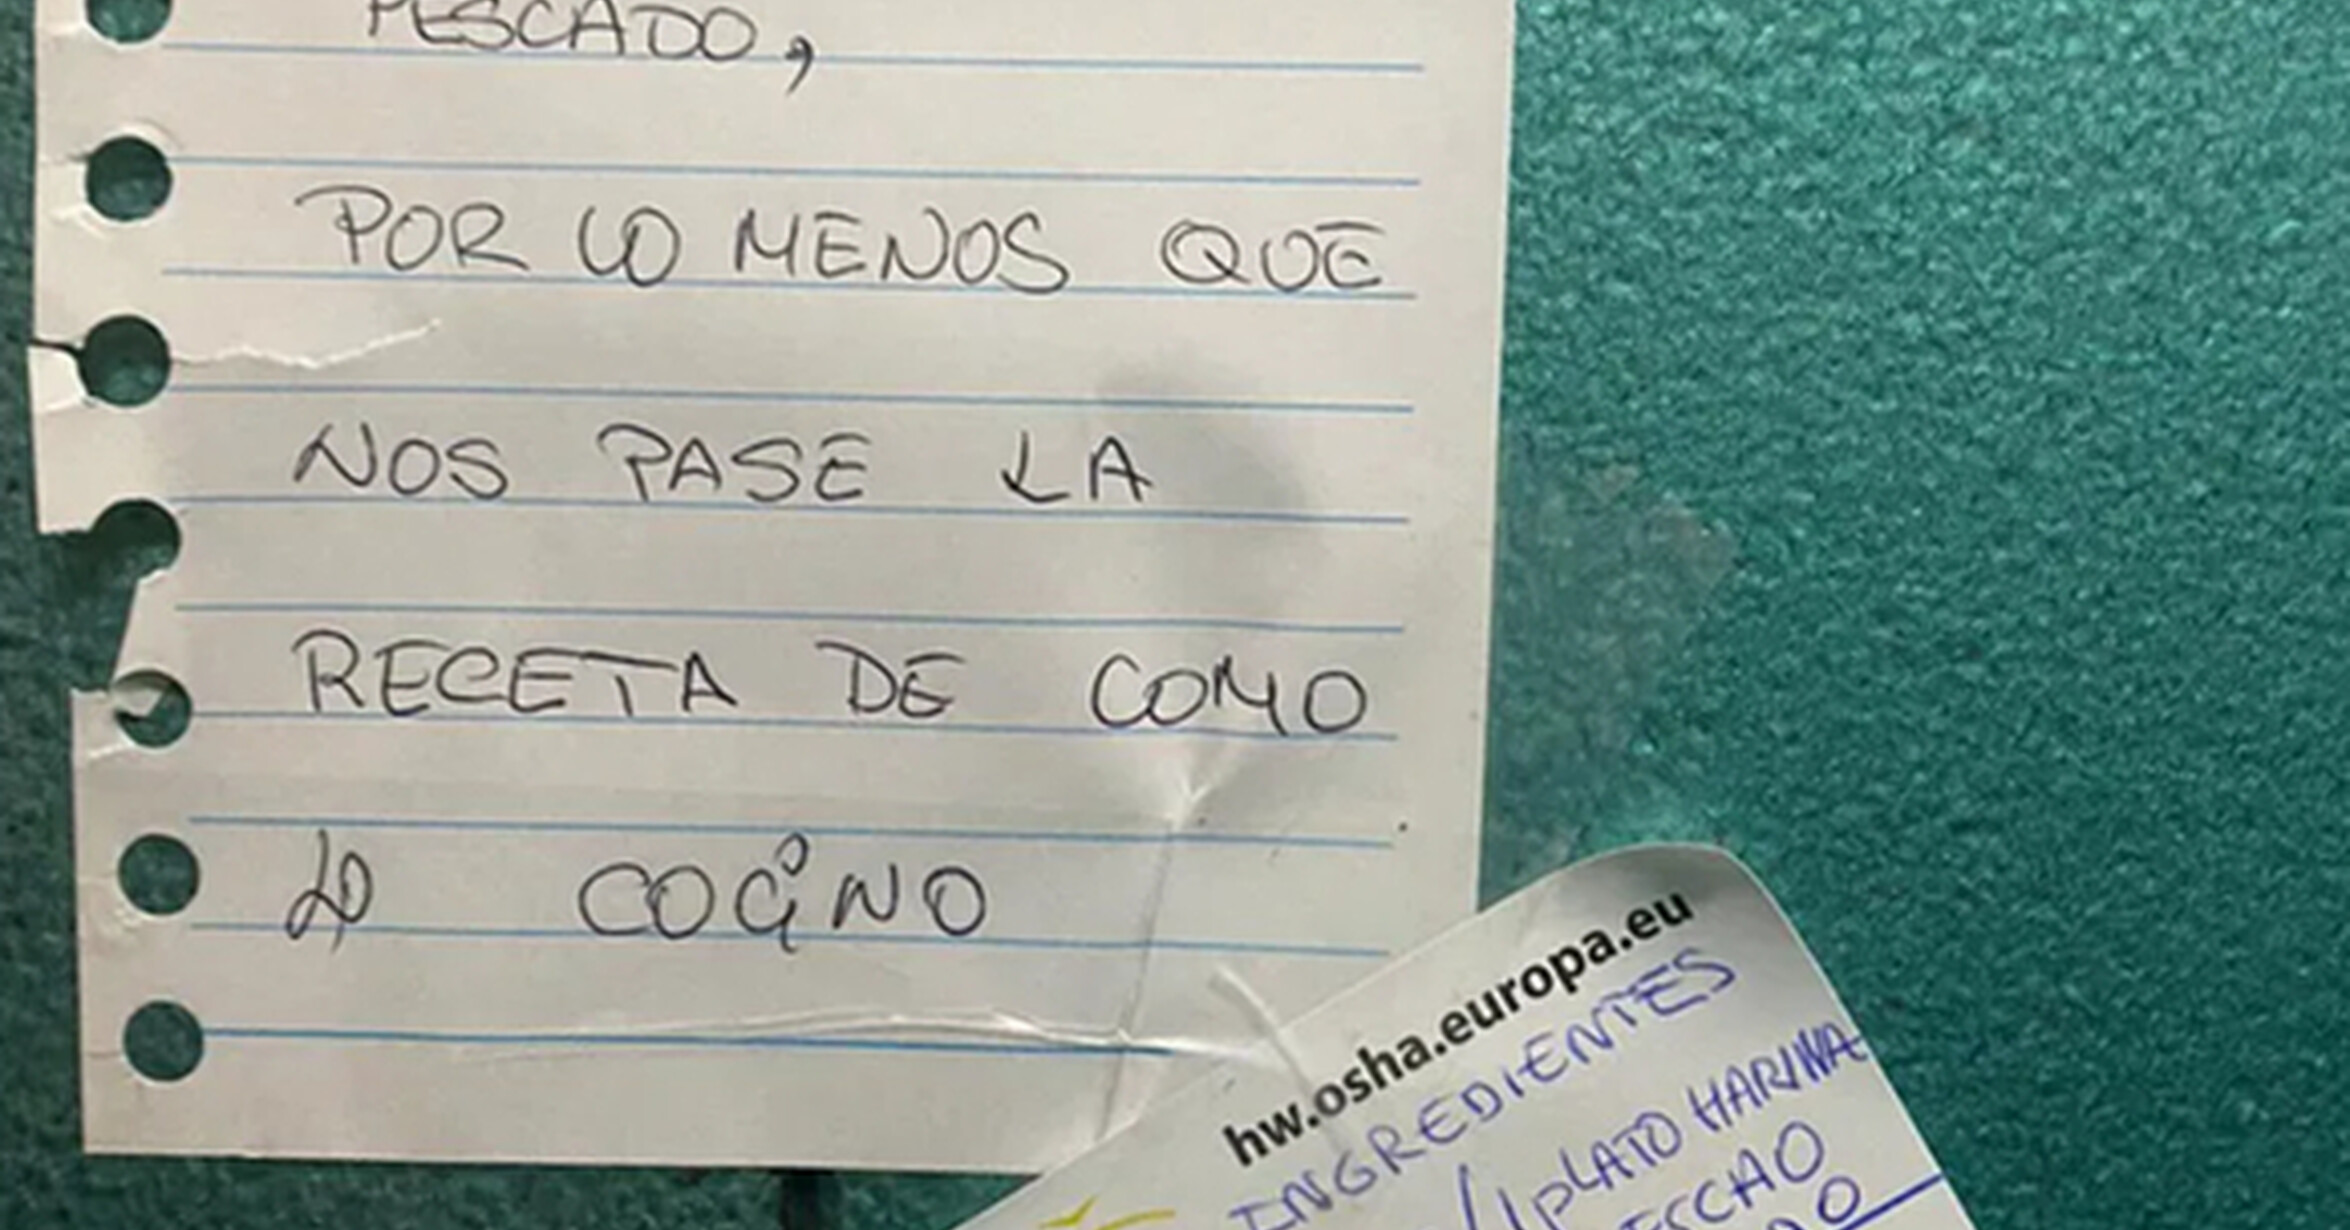 PESCADO,
POR LO MENOS QUE
NOS PASE LA
RECETA DE COMO
LO COCINO
hw.osha.europa.eu
INGREDIENTES
1 PLATO HARINA